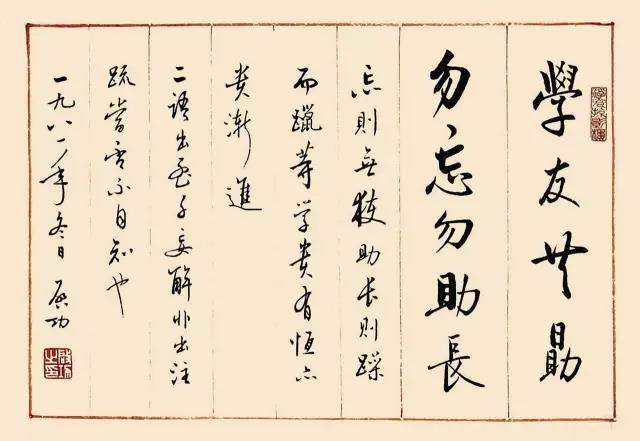 學友共勗
勿忘勿助長
忘則無穫助長則躁
而躐等学貴有恒亦
貴漸進
二語出孟子妄解非出注
疏當否不自知也
一九八一年冬日 启功